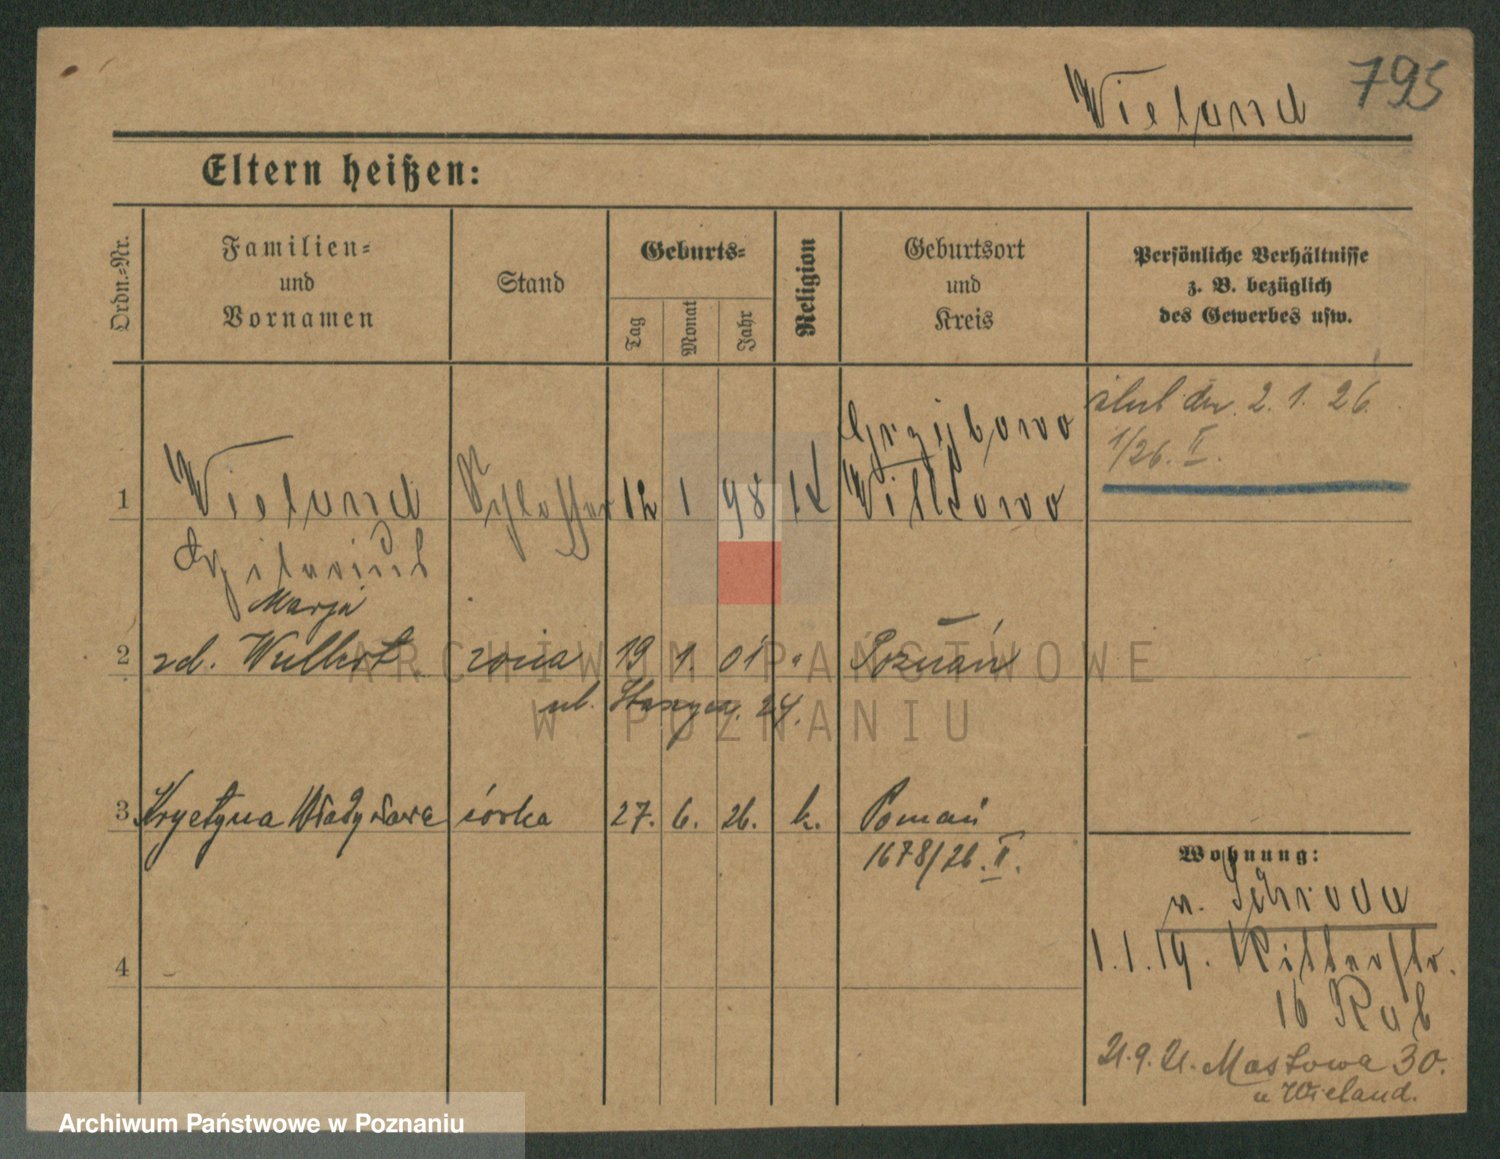 Wieland 795
Eltern heißen:
Ordn.-Nr.
Familien-
und
Vornamen
Stand
Geburts-
Tag
Monat
Jahr
Religion
Geburtsort
und
Kreis
Persönliche Verhältnisse
z. B. bezüglich
des Gewerbes usw.
ślub dn. 2. 1. 26.
1/26. II.
1 Wieland Schlosser 12 1 98 k Grzybowo
Witkowo
Hilarius
Marja
2 zd. żona 19 1. 01 " Poznań
ul. 24.
3 Krystyna Władysława córka 27. 6. 26. k. Poznań
1678/26. II.
4
Wohnung:
v. Schroda
1.1.19. Ritterstr.
16
21.9.21. Mostowa 30.
u Wieland.
ARCHIWUM PAŃSTWOWE
W POZNANIU
Archiwum Państwowe w Poznaniu